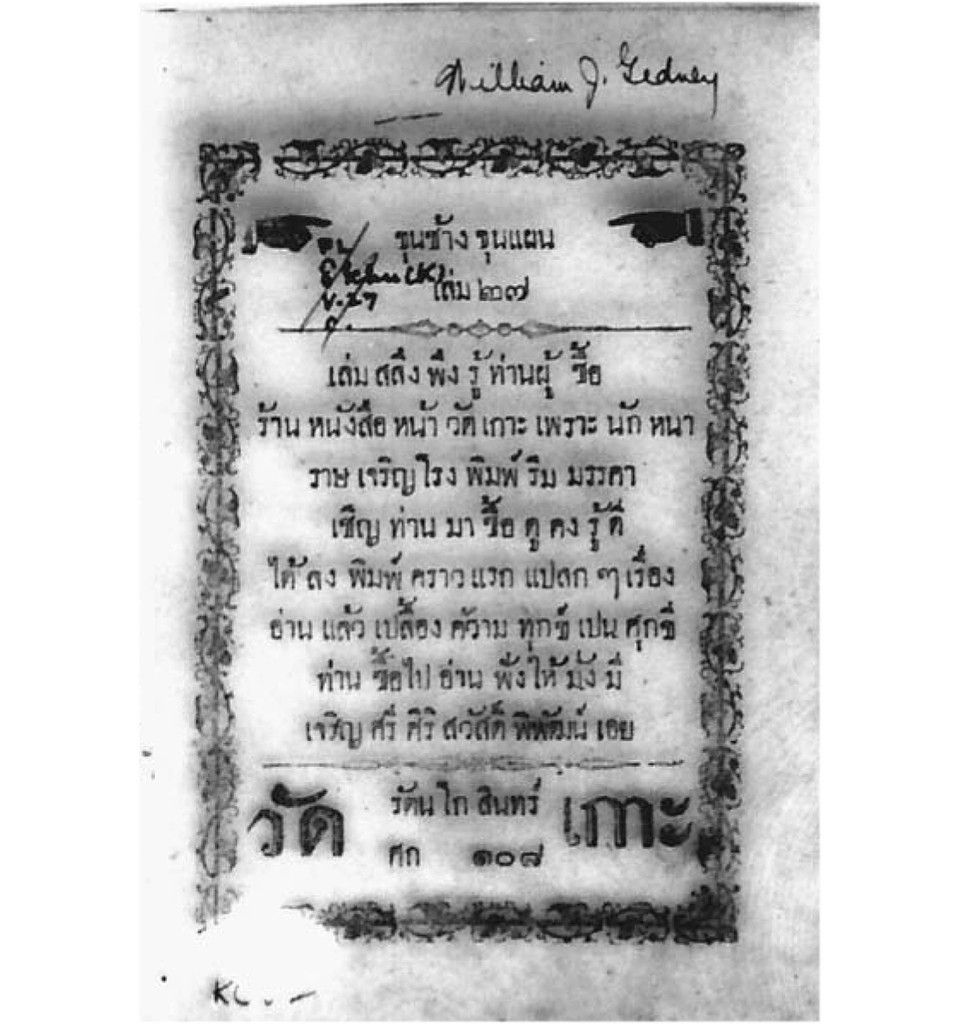 William J. Gedney
ขุนช้าง ขุนแผน
เล่ม ๒๗
V.27
เล่ม สลึง พึง รู้ ท่านผู้ ซื้อ
ร้าน หนังสือ หน้า วัด เกาะ เพราะ นัก หนา
ราษ เจริญ โรง พิมพ์ ริม มรรคา
เชิญ ท่าน มา ซื้อ ดู คง รู้ ดี
ได้ ลง พิมพ์ คราว แรก แปลก ๆ เรื่อง
อ่าน แล้ว เปลื้อง ความ ทุกข์ เปน ศุกขี
ท่าน ซื้อไป อ่าน ฟังให้ มั่ง มี
เจริญ ศรี ศิริ สวัสดิ์ พิพัฒน์ เอย
วัด รัตน โก สินทร์ เกาะ
ศก ๑๐๘